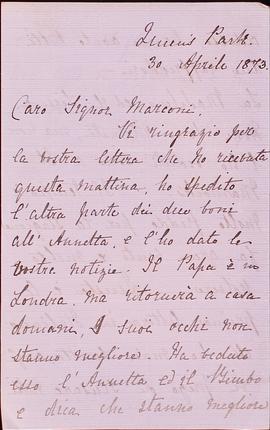 Queens Park.
30 Aprile 1873.
Caro Signor Marconi,
Vi ringrazio per
la vostra lettera che ho ricevuta
questa mattina, ho spedito
l'altra parte dei due boni
all' Annetta, e l'ho dato le
vostre notizie. Il Papa è in
Londra, ma ritornerà a casa
domani, I suoi occhi non
stanno megliore. Ha veduto
esso l'Annetta ed il Bimbo
e dica che stanno megliore